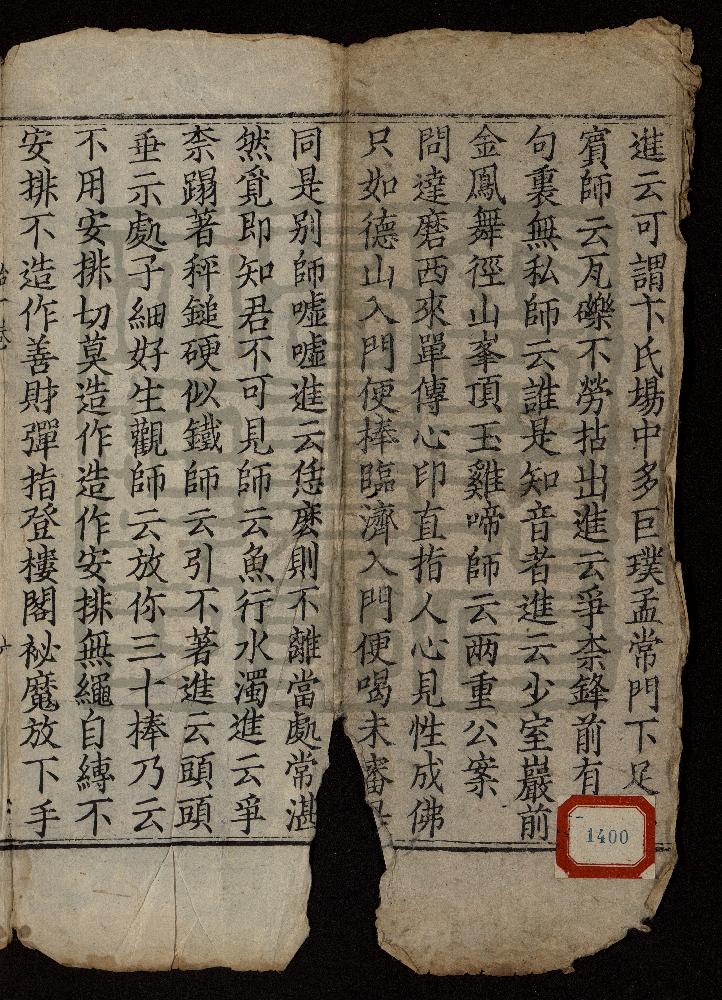 進云可謂卞氏場中多巨璞孟常門下足
賓師云瓦礫不勞拈出進云爭柰鋒前有
句裏無私師云誰是知音者進云少室巖前
金鳳舞徑山峯頂玉雞啼師云两重公案
問達磨西來單傳心印直指人心見性成佛
只如德山入門便棒臨濟入門便喝未審是
同是别師噓噓進云恁麽則不離當處常湛
然覓即知君不可見師云魚行水濁進云爭
柰蹋著秤鎚硬似鐵師云引不著進云頭頭
垂示處子細好生觀師云放你三十棒乃云
不用安排切莫造作造作安排無繩自縛不
安排不造作善財彈指登樓閣祕魔放下手
1400